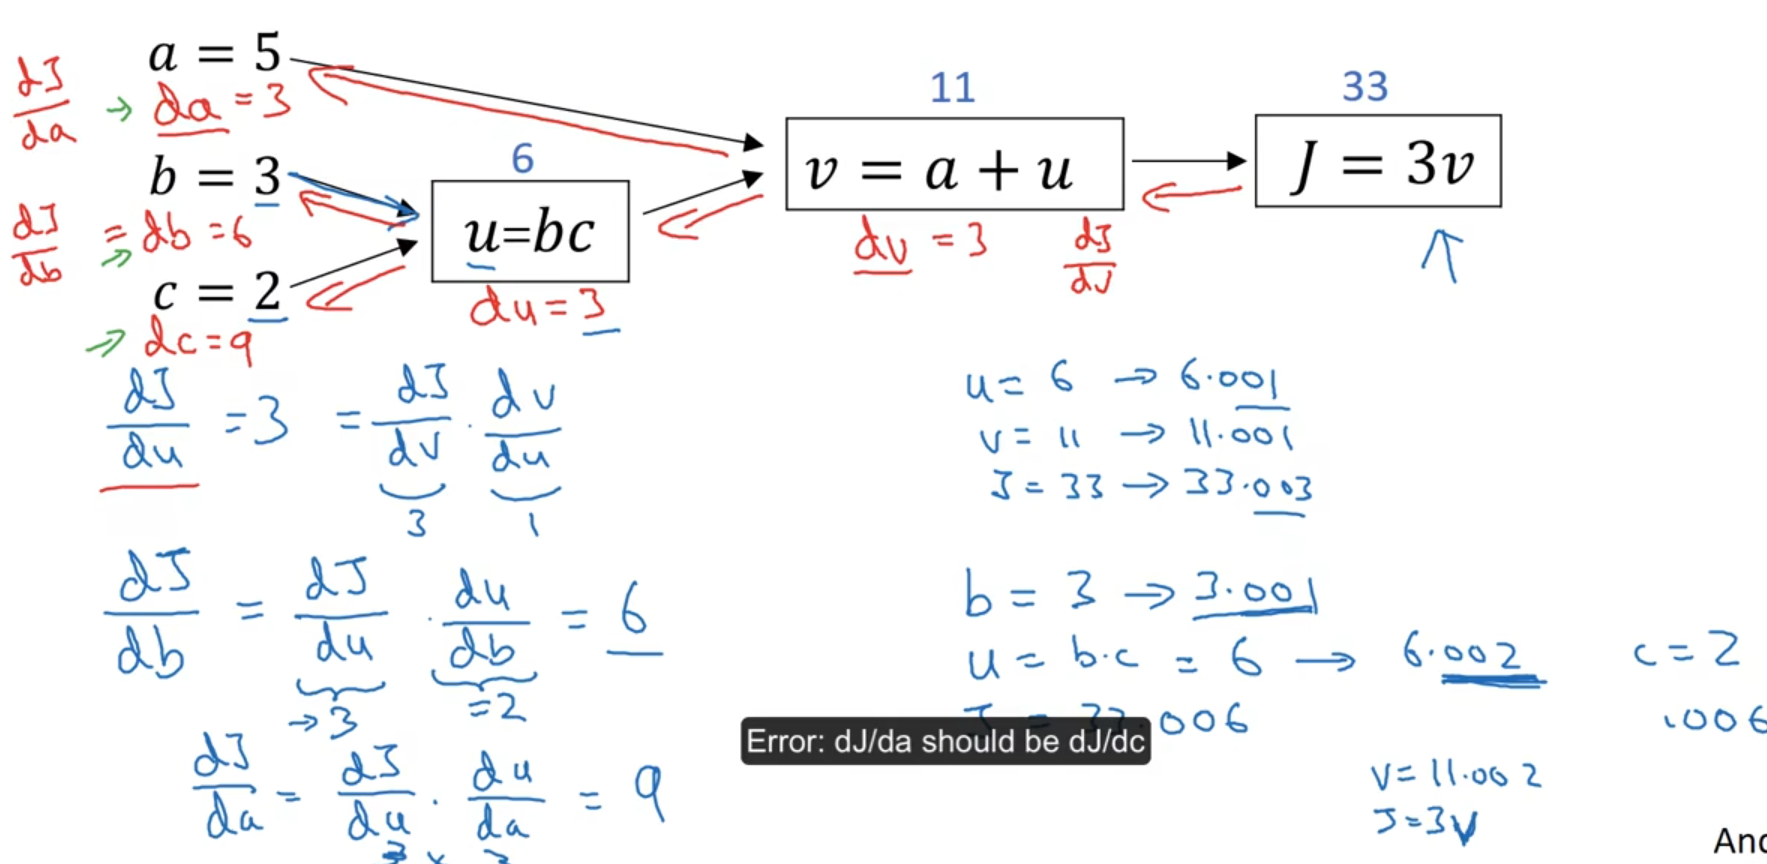 a = 5
dJ/da → da = 3
b = 3
dJ/db = db = 6
c = 2
→ dc = 9
6
u=bc
du = 3
11
v = a + u
dv = 3 dJ/dv
33
J = 3v
dJ/du = 3 = dJ/dv · dv/du
3 1
dJ/db = dJ/du · du/db = 6
→ 3 = 2
dJ/da = dJ/du · du/da = 9
3 × 3
u = 6 → 6.001
v = 11 → 11.001
J = 33 → 33.003
b = 3 → 3.001
u = b·c = 6 → 6.002 c = 2
J = 33.006 .006
Error: dJ/da should be dJ/dc
v = 11.002
J = 3v